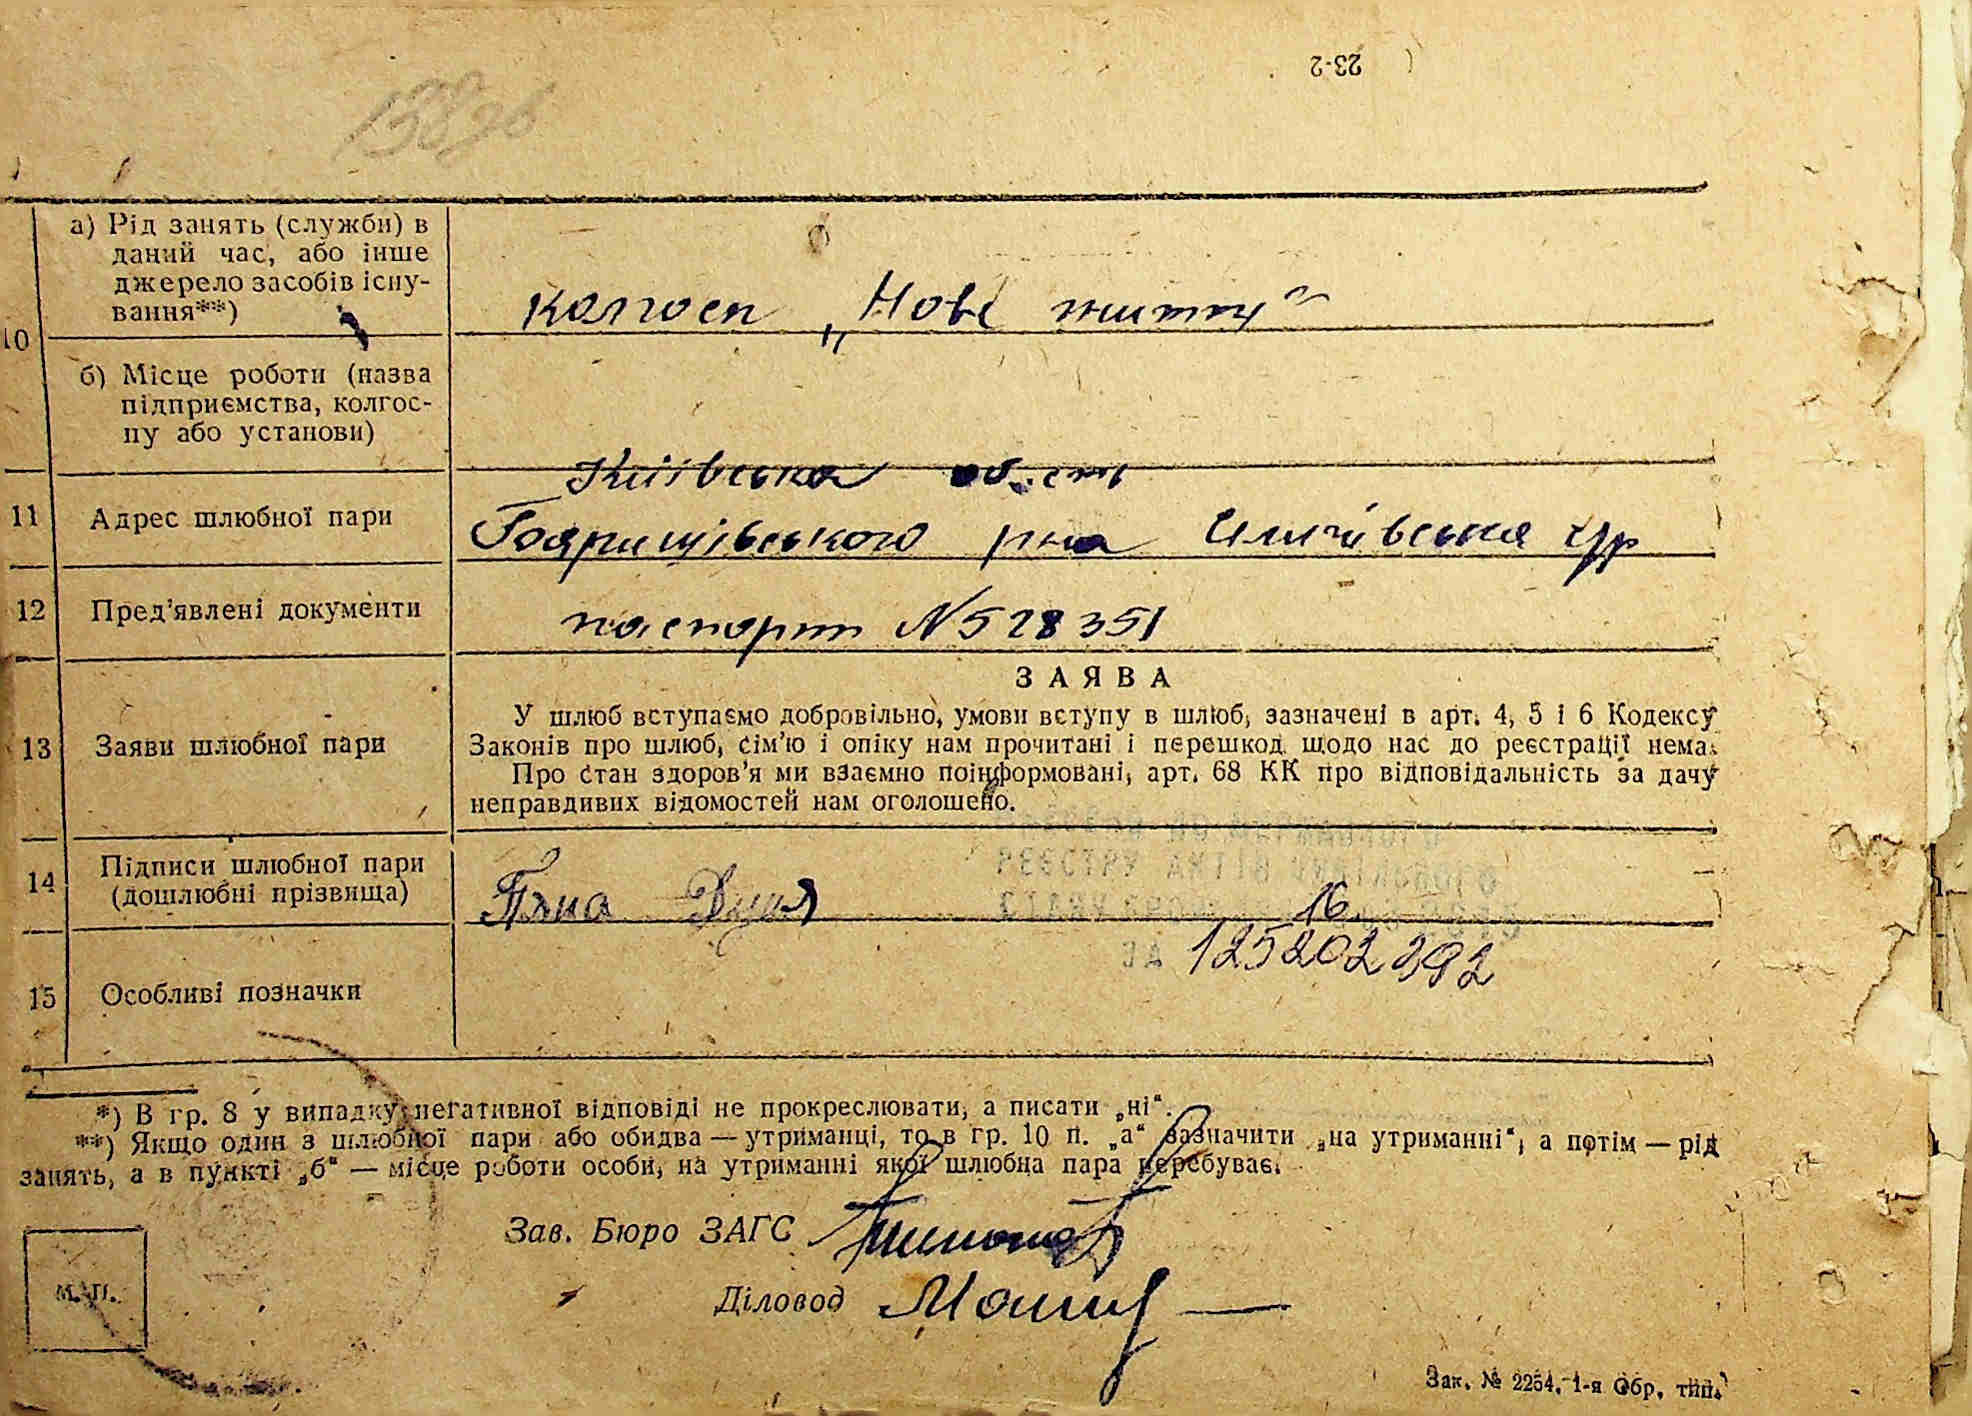 23-2
13826
10
а) Рід занять (служби) в
даний час, або інше
джерело засобів існу-
вання**)
колгосп „Нове життя"
б) Місце роботи (назва
підприємства, колгос-
пу або установи)
11
Адрес шлюбної пари
Київська область
рна
12
Пред'явлені документи
паспорт N528351
13
Заяви шлюбної пари
ЗАЯВА
У шлюб вступаємо добровільно, умови вступу в шлюб, зазначені в арт. 4, 5 і 6 Кодексу
Законів про шлюб, сім'ю і опіку нам прочитані і перешкод щодо нас до реєстрації нема.
Про стан здоров'я ми взаємно поінформовані, арт. 68 КК про відповідальність за дачу
неправдивих відомостей нам оголошено.
14
Підписи шлюбної пари
(дошлюбні прізвища)
РЕЄСТРУ АКТІВ
16
125202392
15
Особливі позначки
*) В гр. 8 у випадку негативної відповіді не прокреслювати, а писати „ні".
**) Якщо один з шлюбної пари або обидва — утриманці, то в гр. 10 п. „а" зазначити „на утриманні", а потім — рід
занять, а в пункті „б" — місце роботи особи, на утриманні якої шлюбна пара перебуває.
Зав. Бюро ЗАГС
Діловод
М. П.
Зак. № 2254. 1-я Обр. тип.